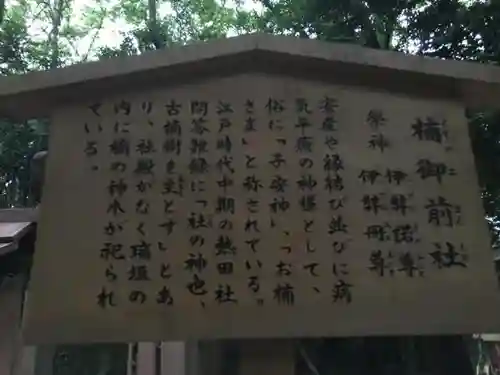 楠御前社
祭神　伊弉諾尊
　　　伊弉冊尊
安産や縁結び並びに病
気平癒の神様として、
俗に「子安神」、「お楠
さま」と称されている。
江戸時代中期の熱田社
問答雑録に「社の神也、
古楠樹を主とす」とあ
り、社殿がなく瑞垣の
内に楠の神木が祀られ
ている。